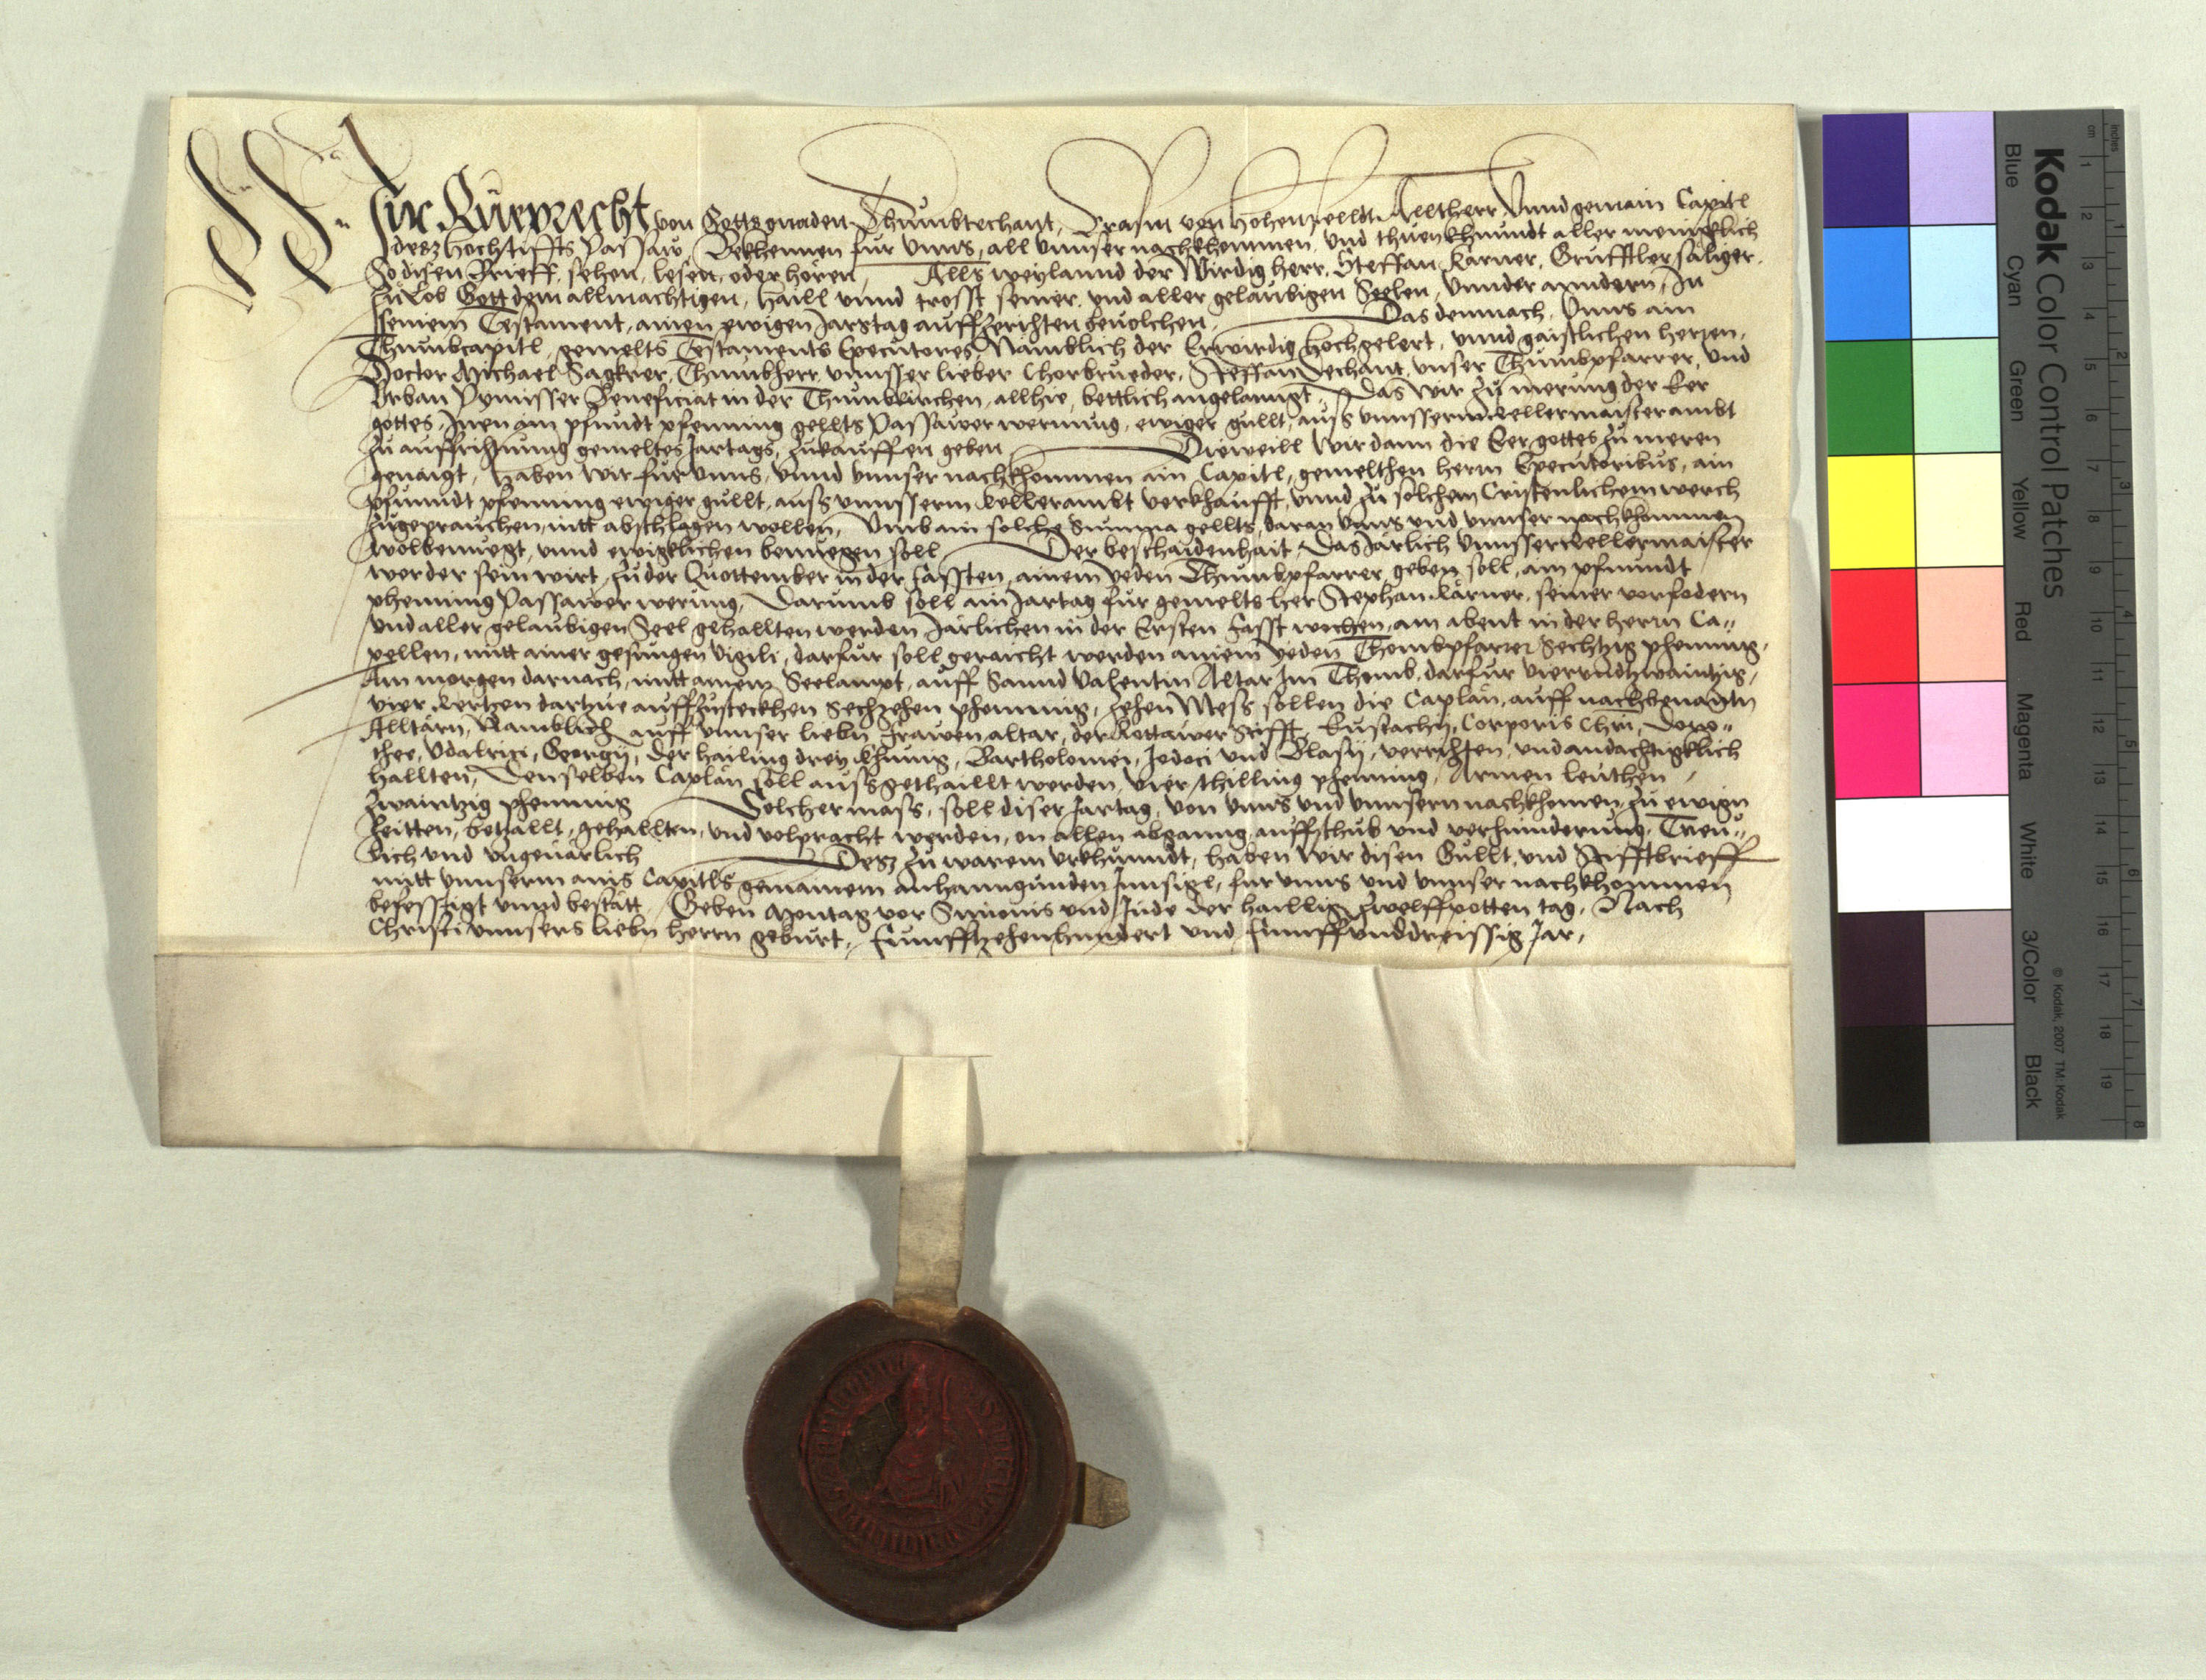 Wir Rueprecht von Gotts gnaden Thumbtechant, Erasm von Hohenfelldt Alltherr, Vnnd gemain Capitl
desz Hochstiffts Passaw, Bekhennen fur vnns, all vnnser nachkhommen, vnd thuen khundt aller menigklich
So disen Brieff, sehen, lesen, oder horen, Alls weylannd der Wirdig herr, Steffan Karner, Grufftler saliger.
Zu Lob Gott dem allmachtigen, Haill vnnd trosst seiner, vnd aller gelaubigen Seelen, vnnder anndern, In
seinem Testament, ainen ewigen Jarstag auffzerichten beuolchen, Das demnach, Vnns ain
Thumbcapitl, gemelts Testaments Executores, Namblich der Erwirdig Hochgelert, vnnd gaistlichen herren,
Doctor Michael Sagkrer, Thumbherr, vnnsser lieber Chorbrueder, Steffan Dechant, vnser Thumbpfarrer, vnd
Vrban Beneficiat in der Thumbkirchen, allhie, bettlich angelanngt, Das wir zu merung der Eer
gottes, Inen ain pfundt pfenning gellts Passawer werunng, ewiger gullt, auss vnnsserm kellermaister ambt
zu auffrichtung gemeltes Jartags, zukauffen geben, Dieweill Wir dann die Eer gottes zu meren
genaigt, Haben Wir fur vnns, vnnd vnnser nachkhommen ain Capitl, gemelthen herrn Executoribus, ain
pfunndt pfenning ewiger gullt, auss vnnsserm kellerambt verkhaufft, vnnd zu solchem Cristenlichem werch
zugeprauchen, nitt abschlagen wollen, Vmb ain solche Summa gellts, daran vnns vnd vnnser nachkhommen
wolbenuegt, vnnd ewigklichen benuegen soll, Der beschaidenhait, Das Järlich vnnsser kellermaister
wer der sein wirt, zu der Quottember in der Fassten, ainem yeden Thumbpfarrer, geben soll, ain pfunndt
phenning Passawer werung, Darumb soll ain Jartag fur gemelts her Stephan Kärner, seiner vorfodern
vnd aller gelaubigen Seel gehallten werden Järlichen in der Ersten Fasst wochen, am abent in der herrn Ca„
pellen, mitt ainer gesungen Vigili, darfur soll geraicht werden ainem yeden Thombpfarrer Sechtzig phenning,
Am morgen darnach, mitt ainem Seelampt, auff Sannd Valentin Altar Im Thomb, darfur vierundtzwaintzig,
vier kertzen dartzue auffzusteckhen Sechzehen phenning, Zehen Mess sollen die Caplän, auff nachbenantn
Alltärn, Namblich auff vnnser liebn Frawen altar, der Rottawer Stifft, Eustachij, Corporis Chri, Doro„
thee, Vdalrici, Georgij, Der hailing drey khunig, Bartholomei, Jodoci vnd Blasij, verrichten, vnd andachtigklich
hallten, Denselben Caplän soll auss gethaillt werden, vier schilling phenning, Armen leuthen,
zwaintzig phenning Solcher mass, soll diser Jartag, von vnns vnd vnnsern nachkhomen, zu ewign
Zeitten, gehallten, vnd volpracht werden, on allen abganng, auffschub vnd verhinnderung, Treu„
lich vnd vngeuärlich Desz zu warem vrkhunndt, haben wir disen Gullt vnd Stifftbrieff
mitt vnnserm ains Capitls gemainem anhanngunden Innsigl, fur vnns vnd vnnser nachkhommen
befesstigt vnnd bestätt, Geben Montag vor Simonis vnd Jude der haillign zwelffpotten tag, Nach
Christi vnnsers liebn herrn geburt, Funfftzehenhundert vnd Funffvnddreissig Jar,
Kodak Color Control Patches
Blue Cyan Green Yellow Red Magenta White 3/Color Black
© Kodak, 2007 TM: Kodak
inches 1 2 3 4 5 6 7 8
cm 1 2 3 4 5 6 7 8 9 10 11 12 13 14 15 16 17 18 19